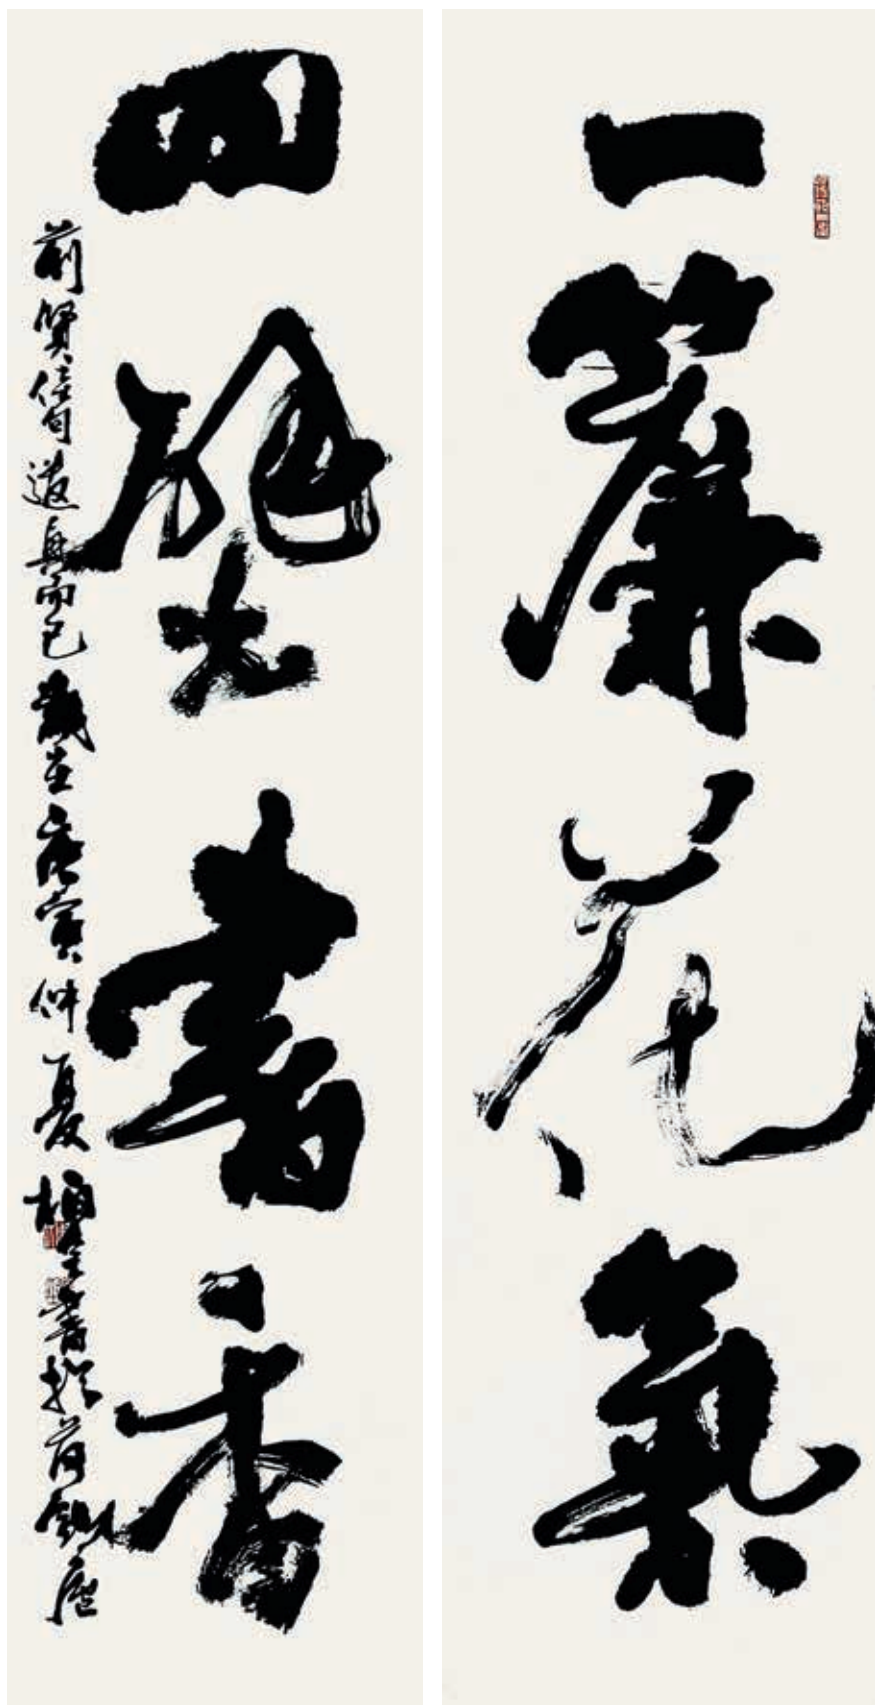 一簾花氣
四壁書香
前賢佳句遣興而已歲在庚寅仲夏書於荷廬